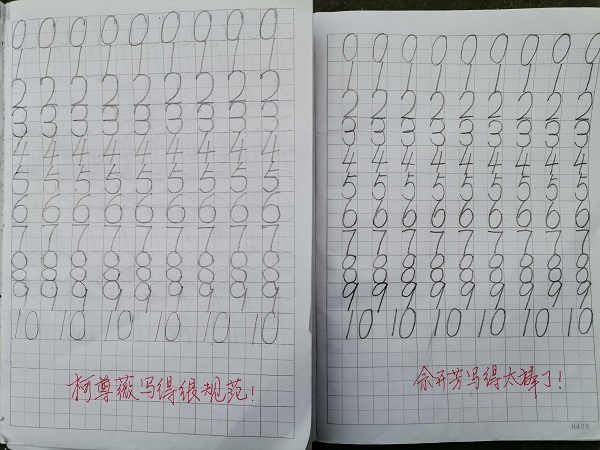 0 0 0 0 0 0 0 0 0
1 1 1 1 1 1 1 1 1
2 2 2 2 2 2 2 2 2
3 3 3 3 3 3 3 3 3
4 4 4 4 4 4 4 4 4
5 5 5 5 5 5 5 5 5
6 6 6 6 6 6 6 6 6
7 7 7 7 7 7 7 7 7
8 8 8 8 8 8 8 8 8
9 9 9 9 9 9 9 9 9
10 10 10 10 10 10
柯尊薇写得很规范!
0 0 0 0 0 0 0 0 0
1 1 1 1 1 1 1 1 1
2 2 2 2 2 2 2 2 2
3 3 3 3 3 3 3 3 3
4 4 4 4 4 4 4 4 4
5 5 5 5 5 5 5 5 5
6 6 6 6 6 6 6 6 6
7 7 7 7 7 7 7 7 7
8 8 8 8 8 8 8 8 8
9 9 9 9 9 9 9 9 9
10 10 10 10 10 10
余开芳写得太棒了!